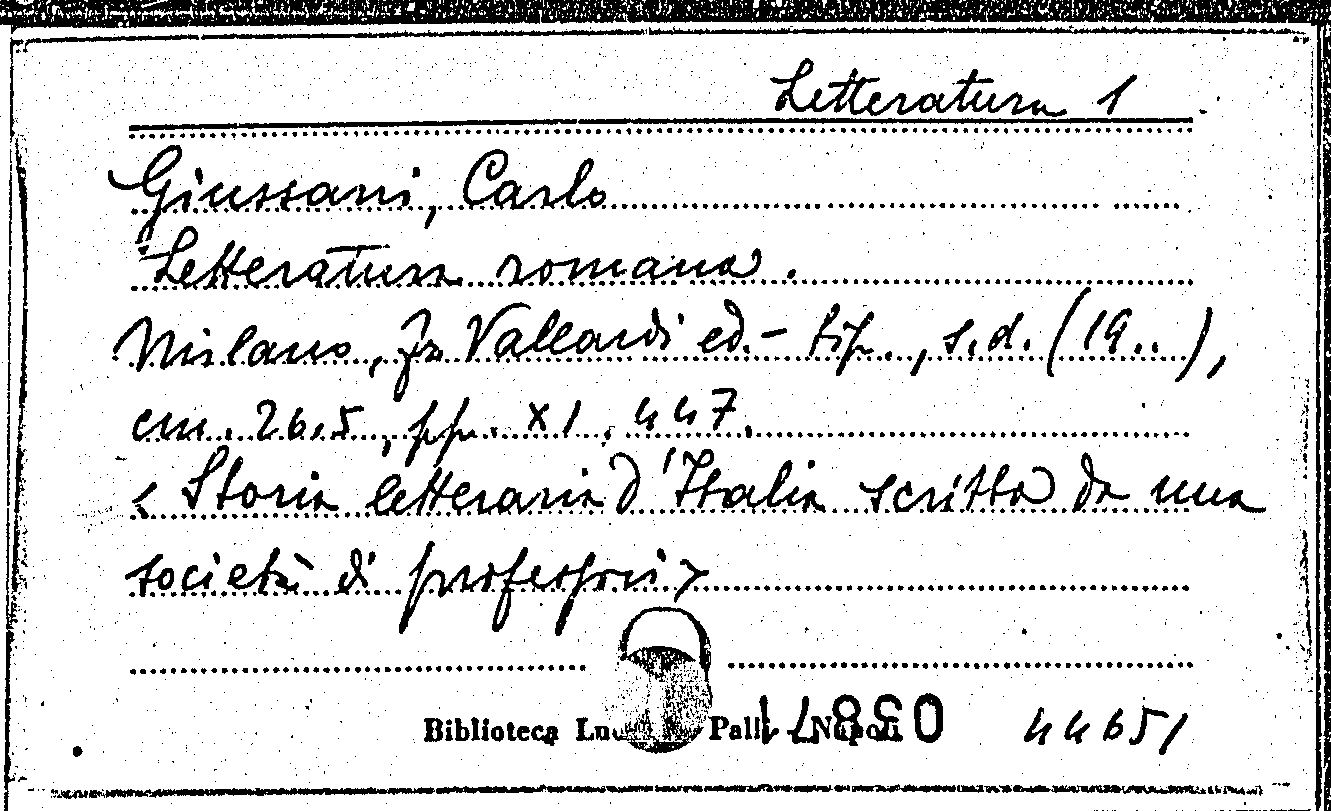 Letteratura 1
Giussani, Carlo
Letteratura romana.
Milano, Fr Vallardi ed.- tip., s.d. (19..),
cm. 26.5, pp. XI, 447.
< Storia letteraria d'Italia scritta da una
società di professori >
Biblioteca Pall Napoli 44651